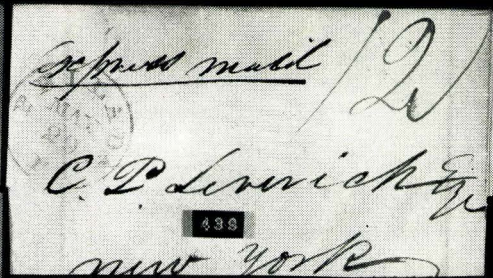 Express mail 12
C. P. Leverich Esqr
438
new york